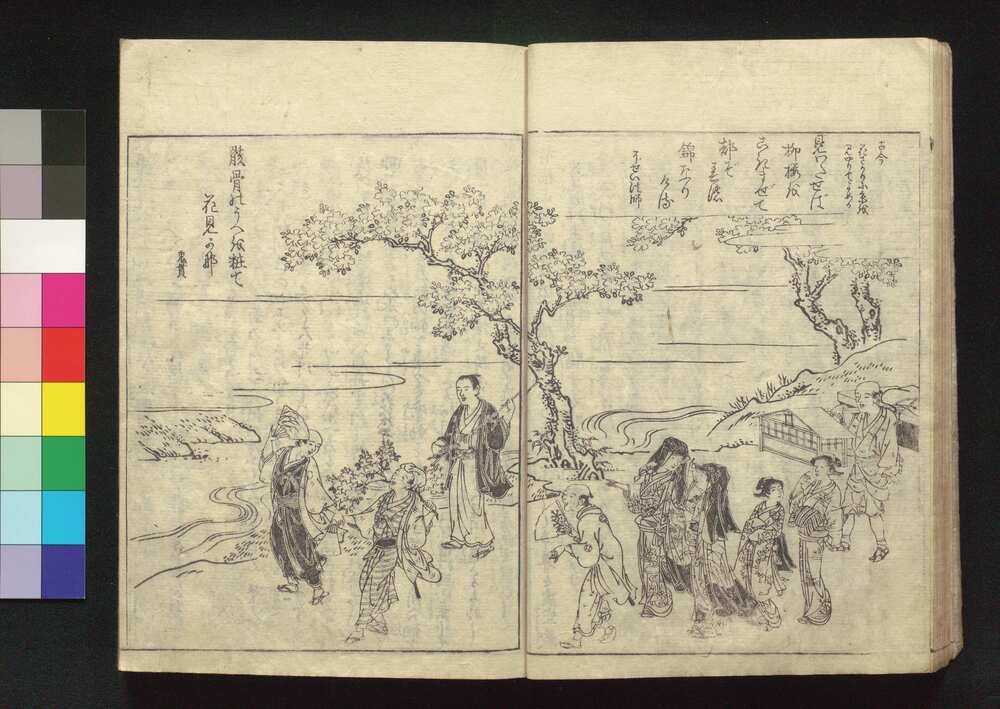 古今
花ざかりに京を
見やりてよめる
見わたせば
柳桜を
こきまぜて
都ぞ
春の
錦なり
ける
そせい法師
骸骨のうへを粧て
花見かな
鬼貫